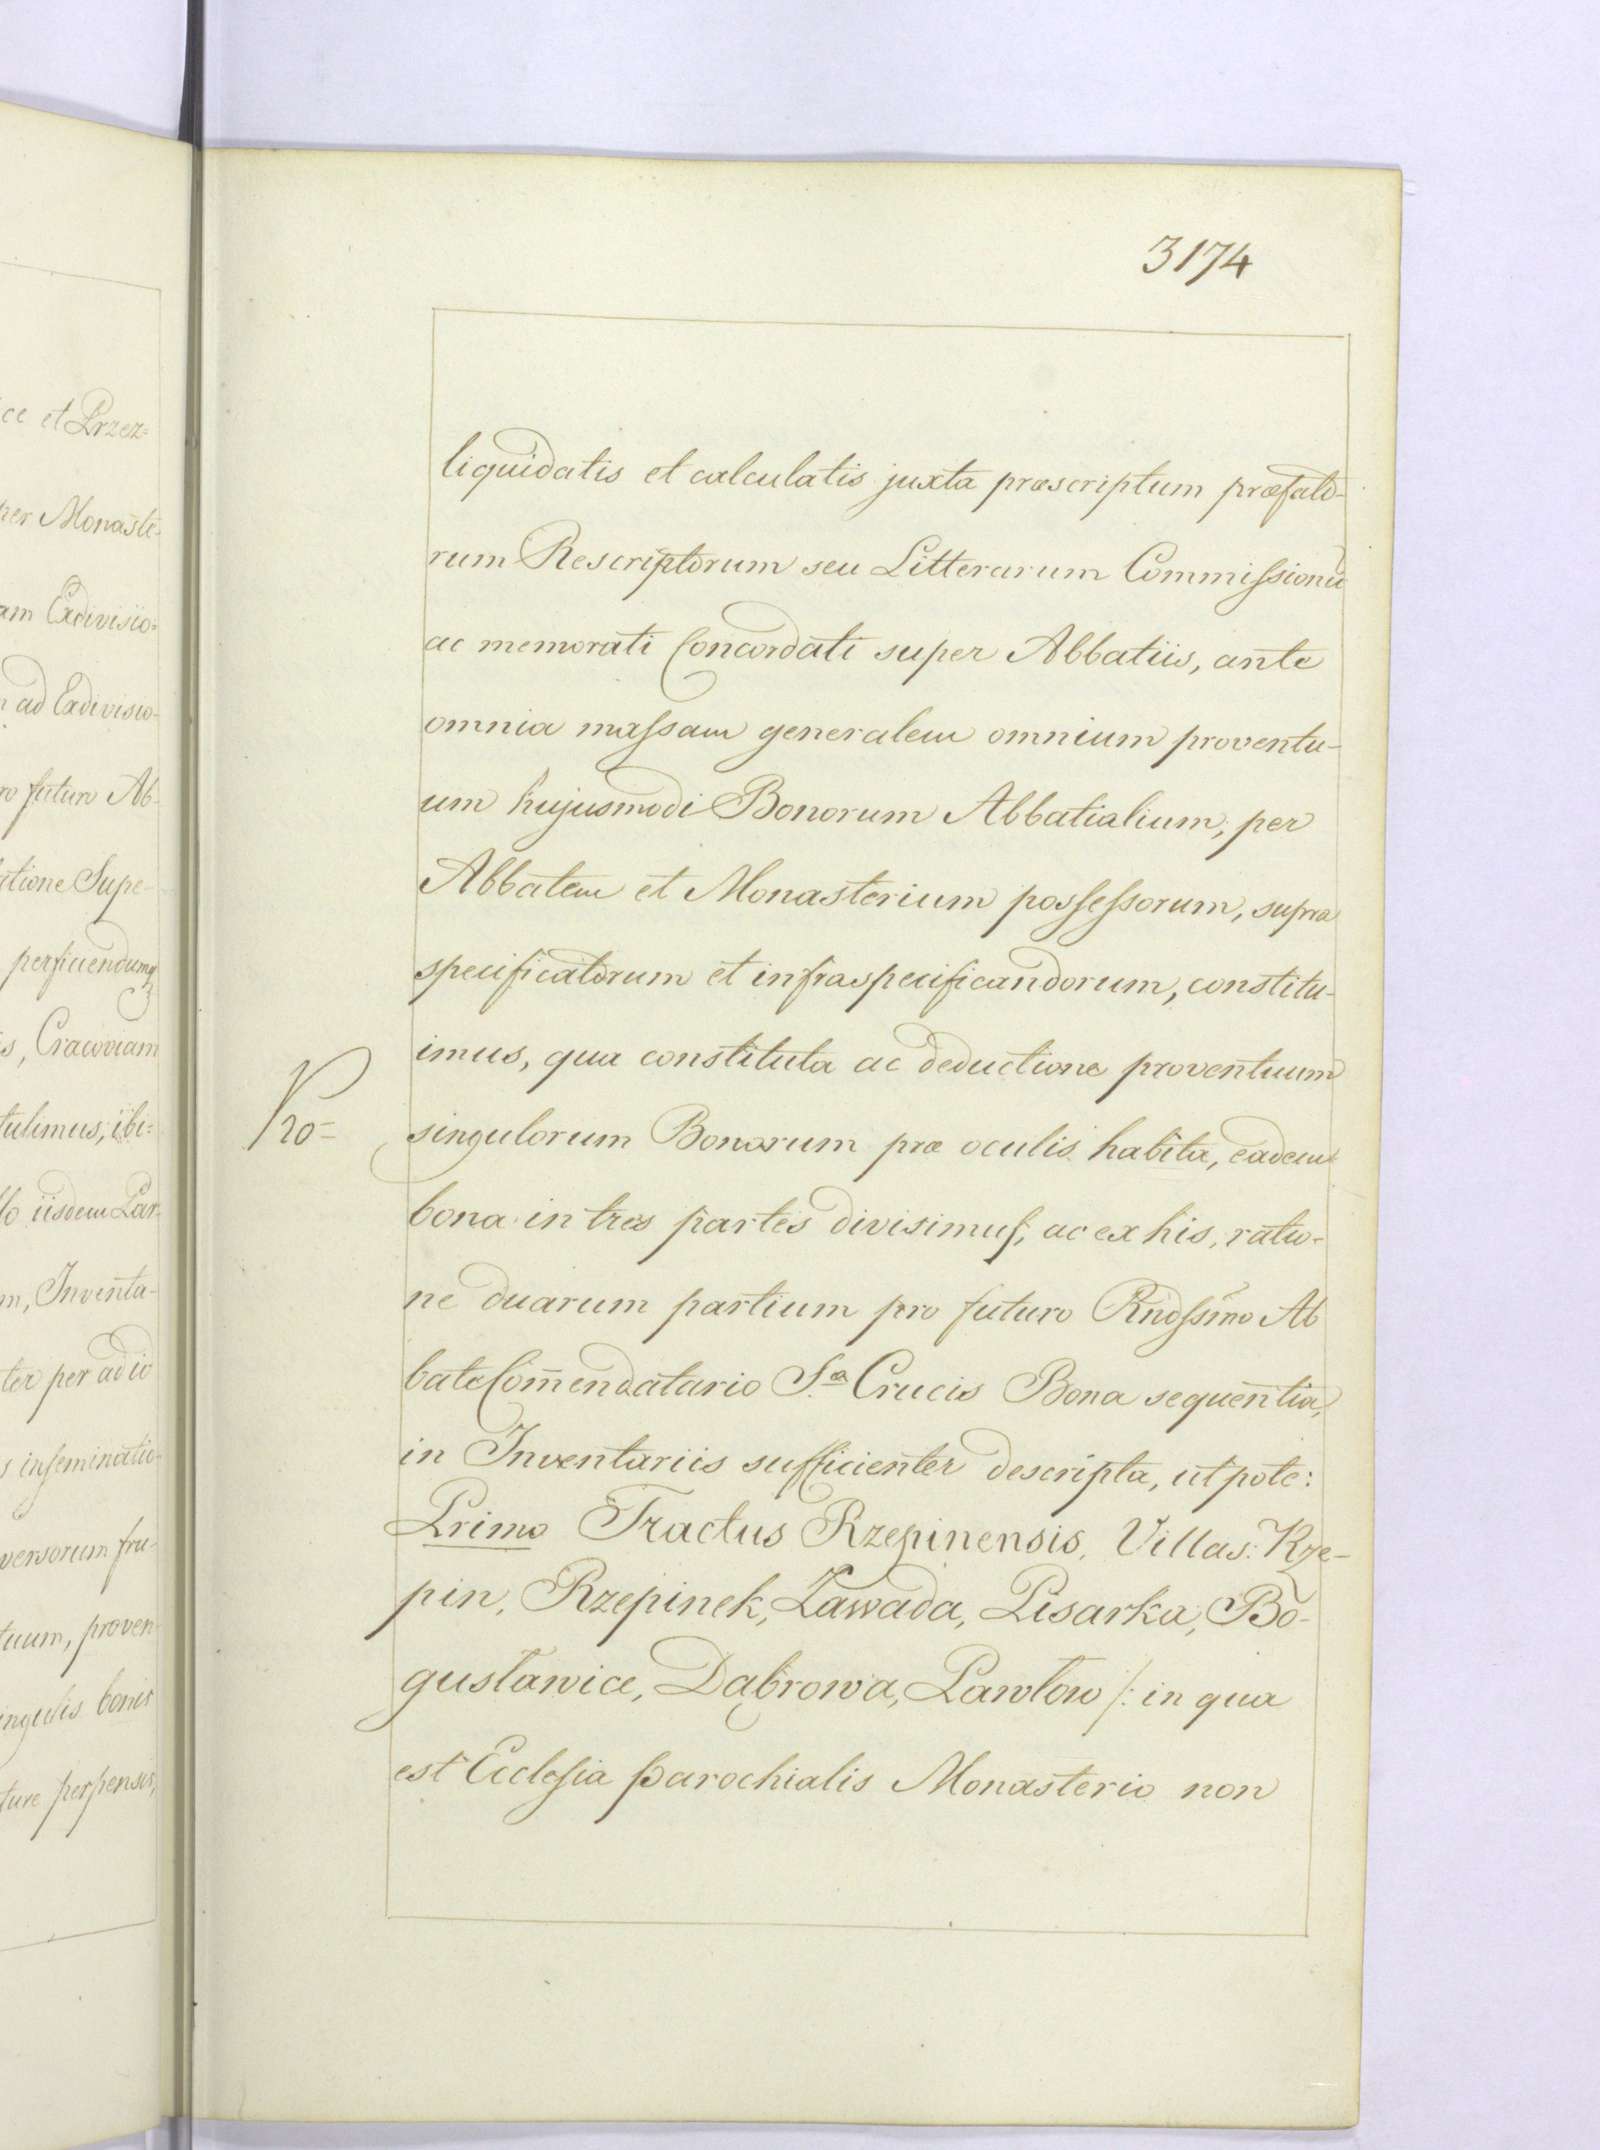 3174
liquidatis et calculatis juxta præscriptum præfato-
rum Rescriptorum seu Litterarum Commissionū
ac memorati Concordati super Abbatiis, ante
omnia massam generalem omnium proventu-
um hujusmodi Bonorum Abbatialium, per
Abbatem et Monasterium possessorum, supra
specificatorum et infraspecificandorum, constitu-
imus, qua constituta ac deductione proventuum
singulorum Bonorum præ oculis habita, eadem
bona in tres partes divisimus, ac ex his, ratio-
ne duarum partium pro futuro Rndssimo Ab
bate Com̄endatario S.æ Crucis Bona sequentia,
in Inventariis sufficienter descripta, utpote:
Primo Tractus Rzepinensis, Villas: Rze-
pin, Rzepinek, Zawada, Pisarka, Bo-
gusławice, Dąbrowa, Pawłow /: in qua
est Ecclesia parochialis Monasterio non
ce et Przez=
per Monaste-
am Exdivisio=
ad Exdivisio-
ro futuro Ab-
tione Supe-
perficiendumq
s, Cracoviam
tulimus, ibi=
iisdem Par-
m, Inventa-
ter per ad io
s inseminatio-
versorum fru-
tuum, proven
ingulis bonis
ture perpensis,